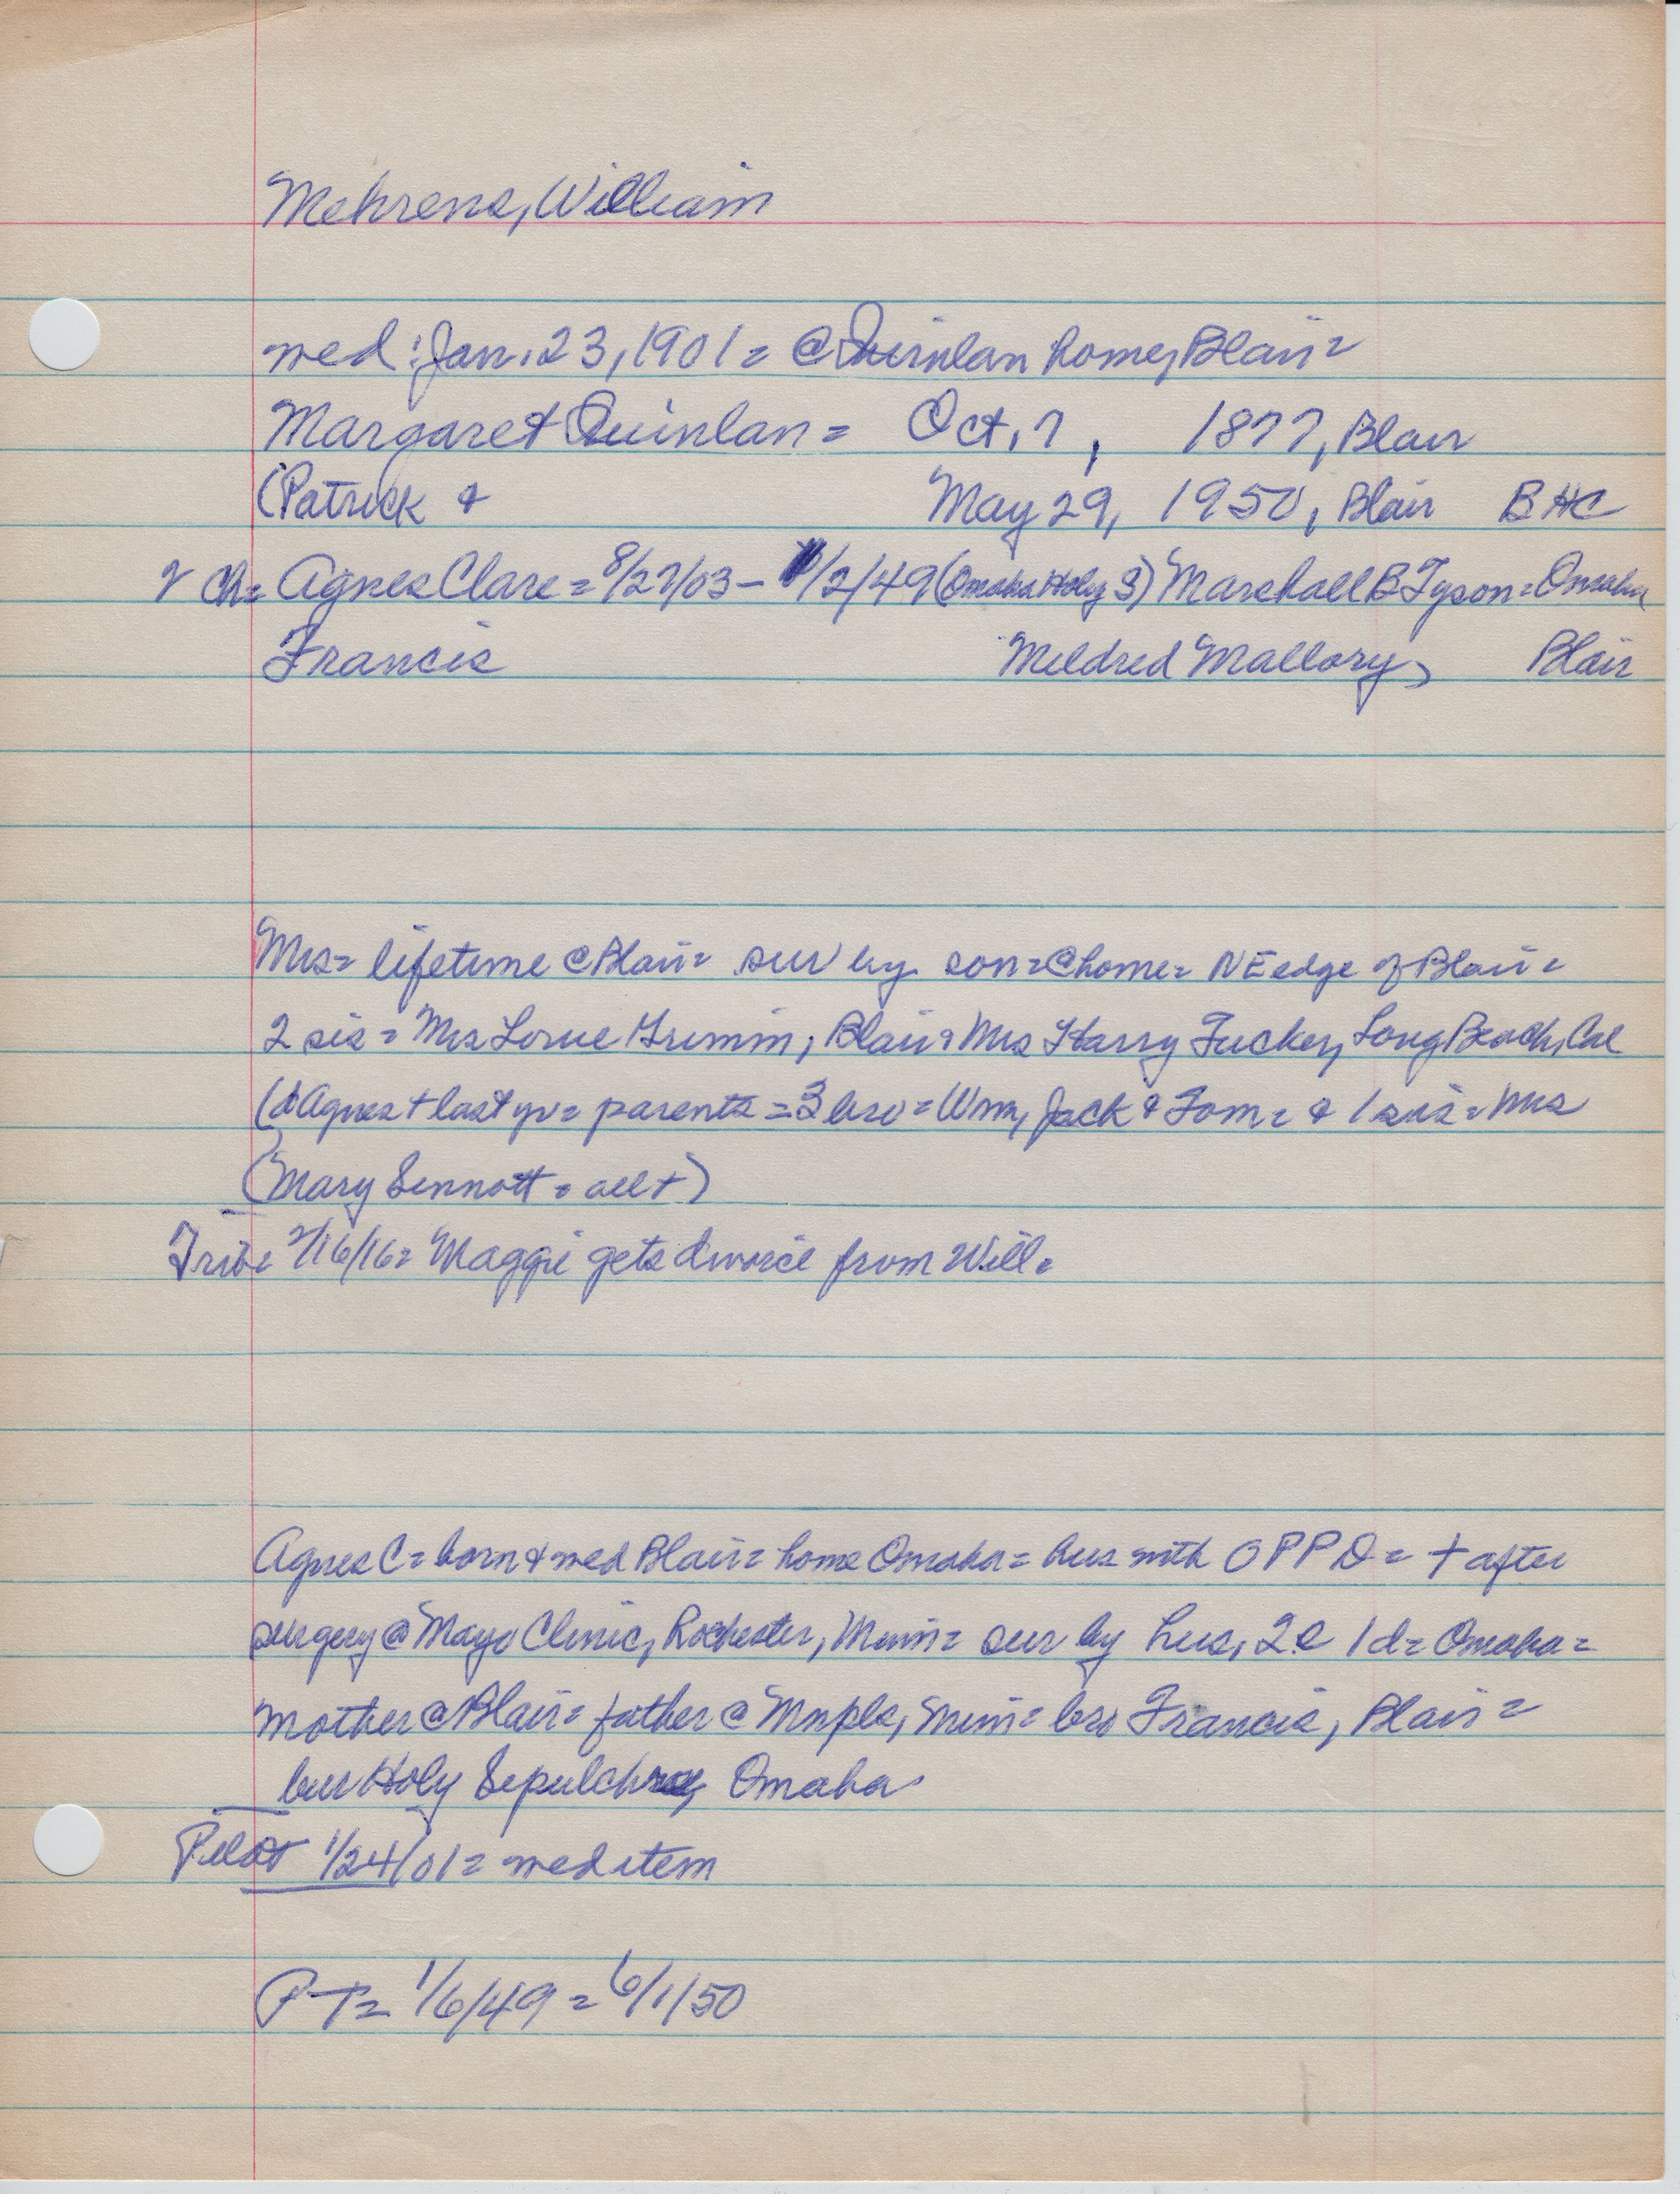 Mehrens, William
wed: Jan. 23, 1901= @ Quinlan home, Blair=
Margaret Quinlan= Oct. 7, 1877, Blair
(Patrick & May 29, 1950, Blair BHC
2 ch= Agnes Clare= 8/27/03- 1/2/49 (Omaha Holy S) Marshall B Tyson= Omaha
Francis Mildred Mallory, Blair
Mrs= lifetime @ Blair= sur by son= @ home= NE edge of Blair=
2 sis= Mrs Lorne Grimm, Blair & Mrs Harry Tucker, Long Beach, Cal
(d Agnes + last yr= parents = 3 bro= Wm, Jack & Tom= & 1 sis= Mrs
(Mary Sennott= all +)
Trib= 2/16/16= Maggie gets divorce from Will=
Agnes C= born & wed Blair= home Omaha= hus with OPPD= + after
surgery @ Mayo Clinic, Rochester, Minn= sur by hus, 2s 1d= Omaha=
mother @ Blair= father @ Mnpls, Minn= bro Francis, Blair=
bur Holy Sepulchre, Omaha
Pilot 1/24/01= wed item
PT= 1/6/49= 6/1/50